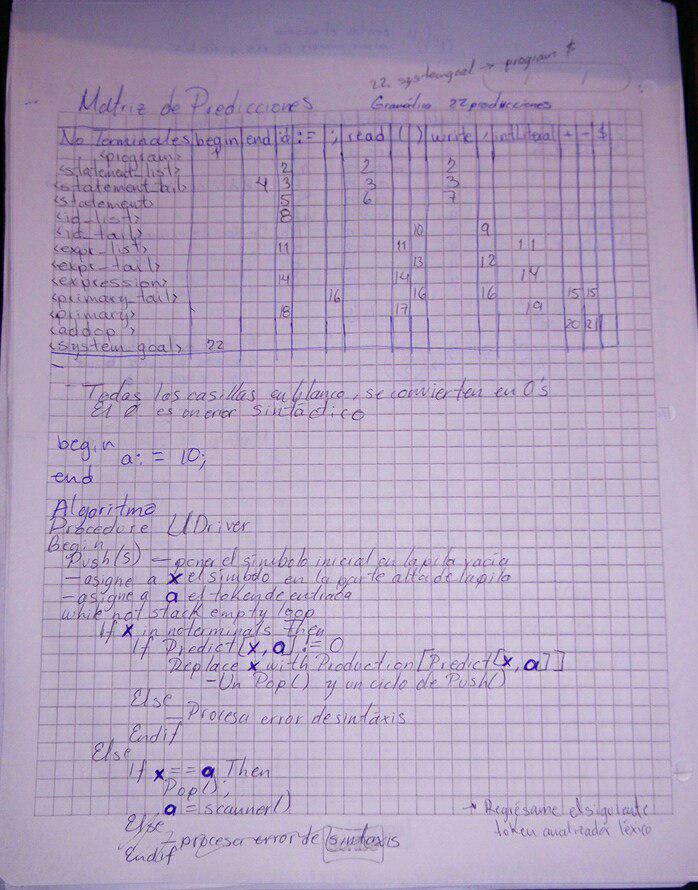 22. system goal → program $
Matriz de Predicciones
Gramática 22 producciones
No Terminales begin end id := ; read ( ) write , intLiteral + - $
<program> 1
<statement_list> 2 2 2
<statement_tail> 4 3 3 3
<statement> 5 6 7
<id_list> 8
<id_tail> 10 9
<expr_list> 11 11 11
<expr_tail> 13 12
<expression> 14 14 14
<primary_tail> 16 16 16 15 15
<primary> 18 17 19
<addop> 20 21
<system goal> 22
- Todas las casillas en blanco, se convierten en 0's
El 0 es un error sintáctico
begin
a: = 10;
end
Algoritmo
Procedure LLDriver
Begin
Push(s) - poner el símbolo inicial en la pila vacía
- asigne a x el símbolo en la parte alta de la pila
- asigne a a el token de entrada
while not stack empty loop
If x in noterminals Then
If Predict[x,a] != 0
Replace x with Production[Predict[x,a]]
- Un Pop() y un ciclo de Push()
Else
- Procesa error de sintáxis
Endif
Else
If x == a Then
Pop();
a = scanner()
→ Regrésame el siguiente
token analizador léxico
Else
- procesa error de sintaxis
Endif